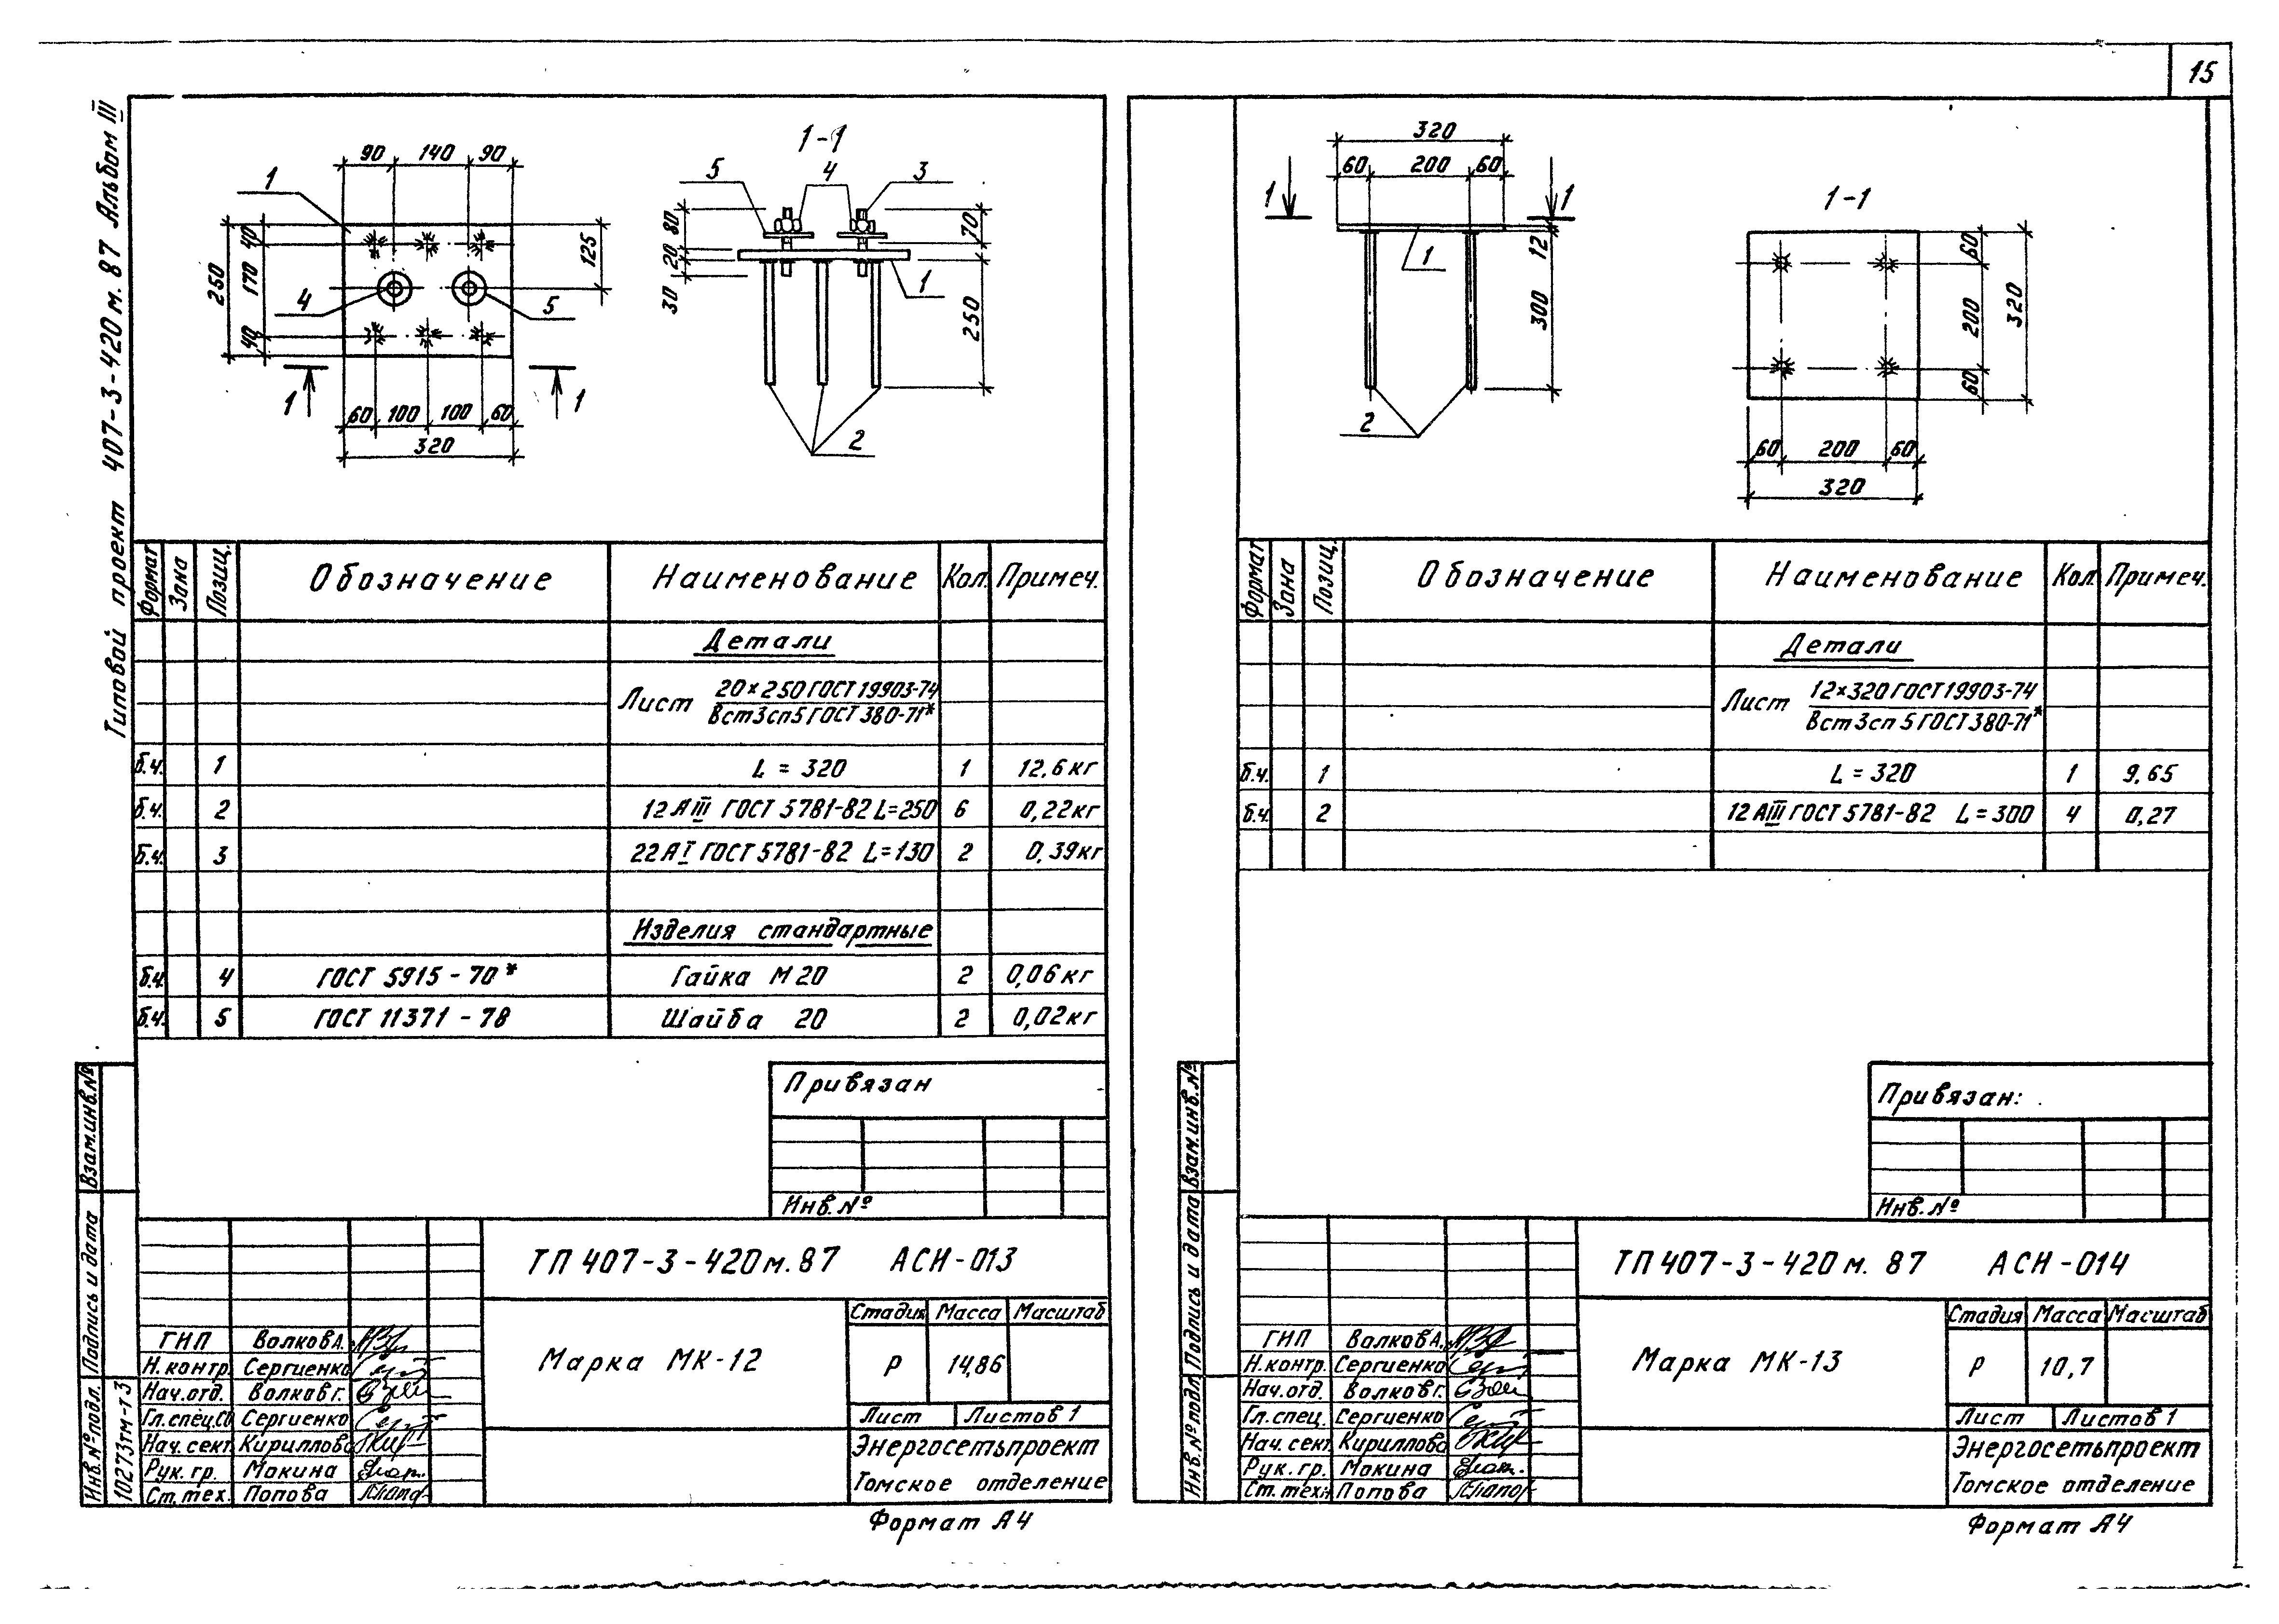 15
Типовой проект 407-3-420м.87 Альбом III
90 140 90
1
250
40 170 40
125
4
5
1 1
60 100 100 60
320
1-1
5 4 3
80 20 30
70
250
1
2
Формат Зона Позиц. Обозначение Наименование Кол. Примеч.
Детали
Лист 20×250 ГОСТ 19903-74
Вст3сп5 ГОСТ 380-71*
б.ч. 1 L = 320 1 12,6кг
б.ч. 2 12АIII ГОСТ 5781-82 L=250 6 0,22кг
б.ч. 3 22АI ГОСТ 5781-82 L=130 2 0,39кг
Изделия стандартные
б.ч. 4 ГОСТ 5915-70* Гайка М20 2 0,06кг
б.ч. 5 ГОСТ 11371-78 Шайба 20 2 0,02кг
Привязан
Инв.№
Взам.инв.№
Подпись и дата
Инв.№подл.
10273тм-т3
ТП 407-3-420м.87 АСИ-013
Марка МК-12
Стадия Масса Масштаб
Р 14,86
Лист Листов 1
Энергосетьпроект
Томское отделение
ГИП Волков А.
Н.контр. Сергиенко
Нач.отд. Волков г.
Гл.спец.СО Сергиенко
Нач. сект. Кириллова
Рук. гр. Мокина
Ст.тех. Попова
Формат А4
320
60 200 60
1 1
1
12
300
2
1-1
60 200 60
320
60 200 60
320
Формат Зона Позиц. Обозначение Наименование Кол. Примеч.
Детали
Лист 12×320 ГОСТ 19903-74
Вст3сп5 ГОСТ 380-71*
б.ч. 1 L = 320 1 9,65
б.ч. 2 12АIII ГОСТ 5781-82 L=300 4 0,27
Привязан:
Инв.№
Взам.инв.№
Подпись и дата
Инв.№подл.
ТП 407-3-420м.87 АСИ-014
Марка МК-13
Стадия Масса Масштаб
Р 10,7
Лист Листов 1
Энергосетьпроект
Томское отделение
ГИП Волков А.
Н.контр. Сергиенко
Нач.отд. Волков г.
Гл.спец. Сергиенко
Нач. сект. Кириллова
Рук. гр. Мокина
Ст.техн. Попова
Формат А4